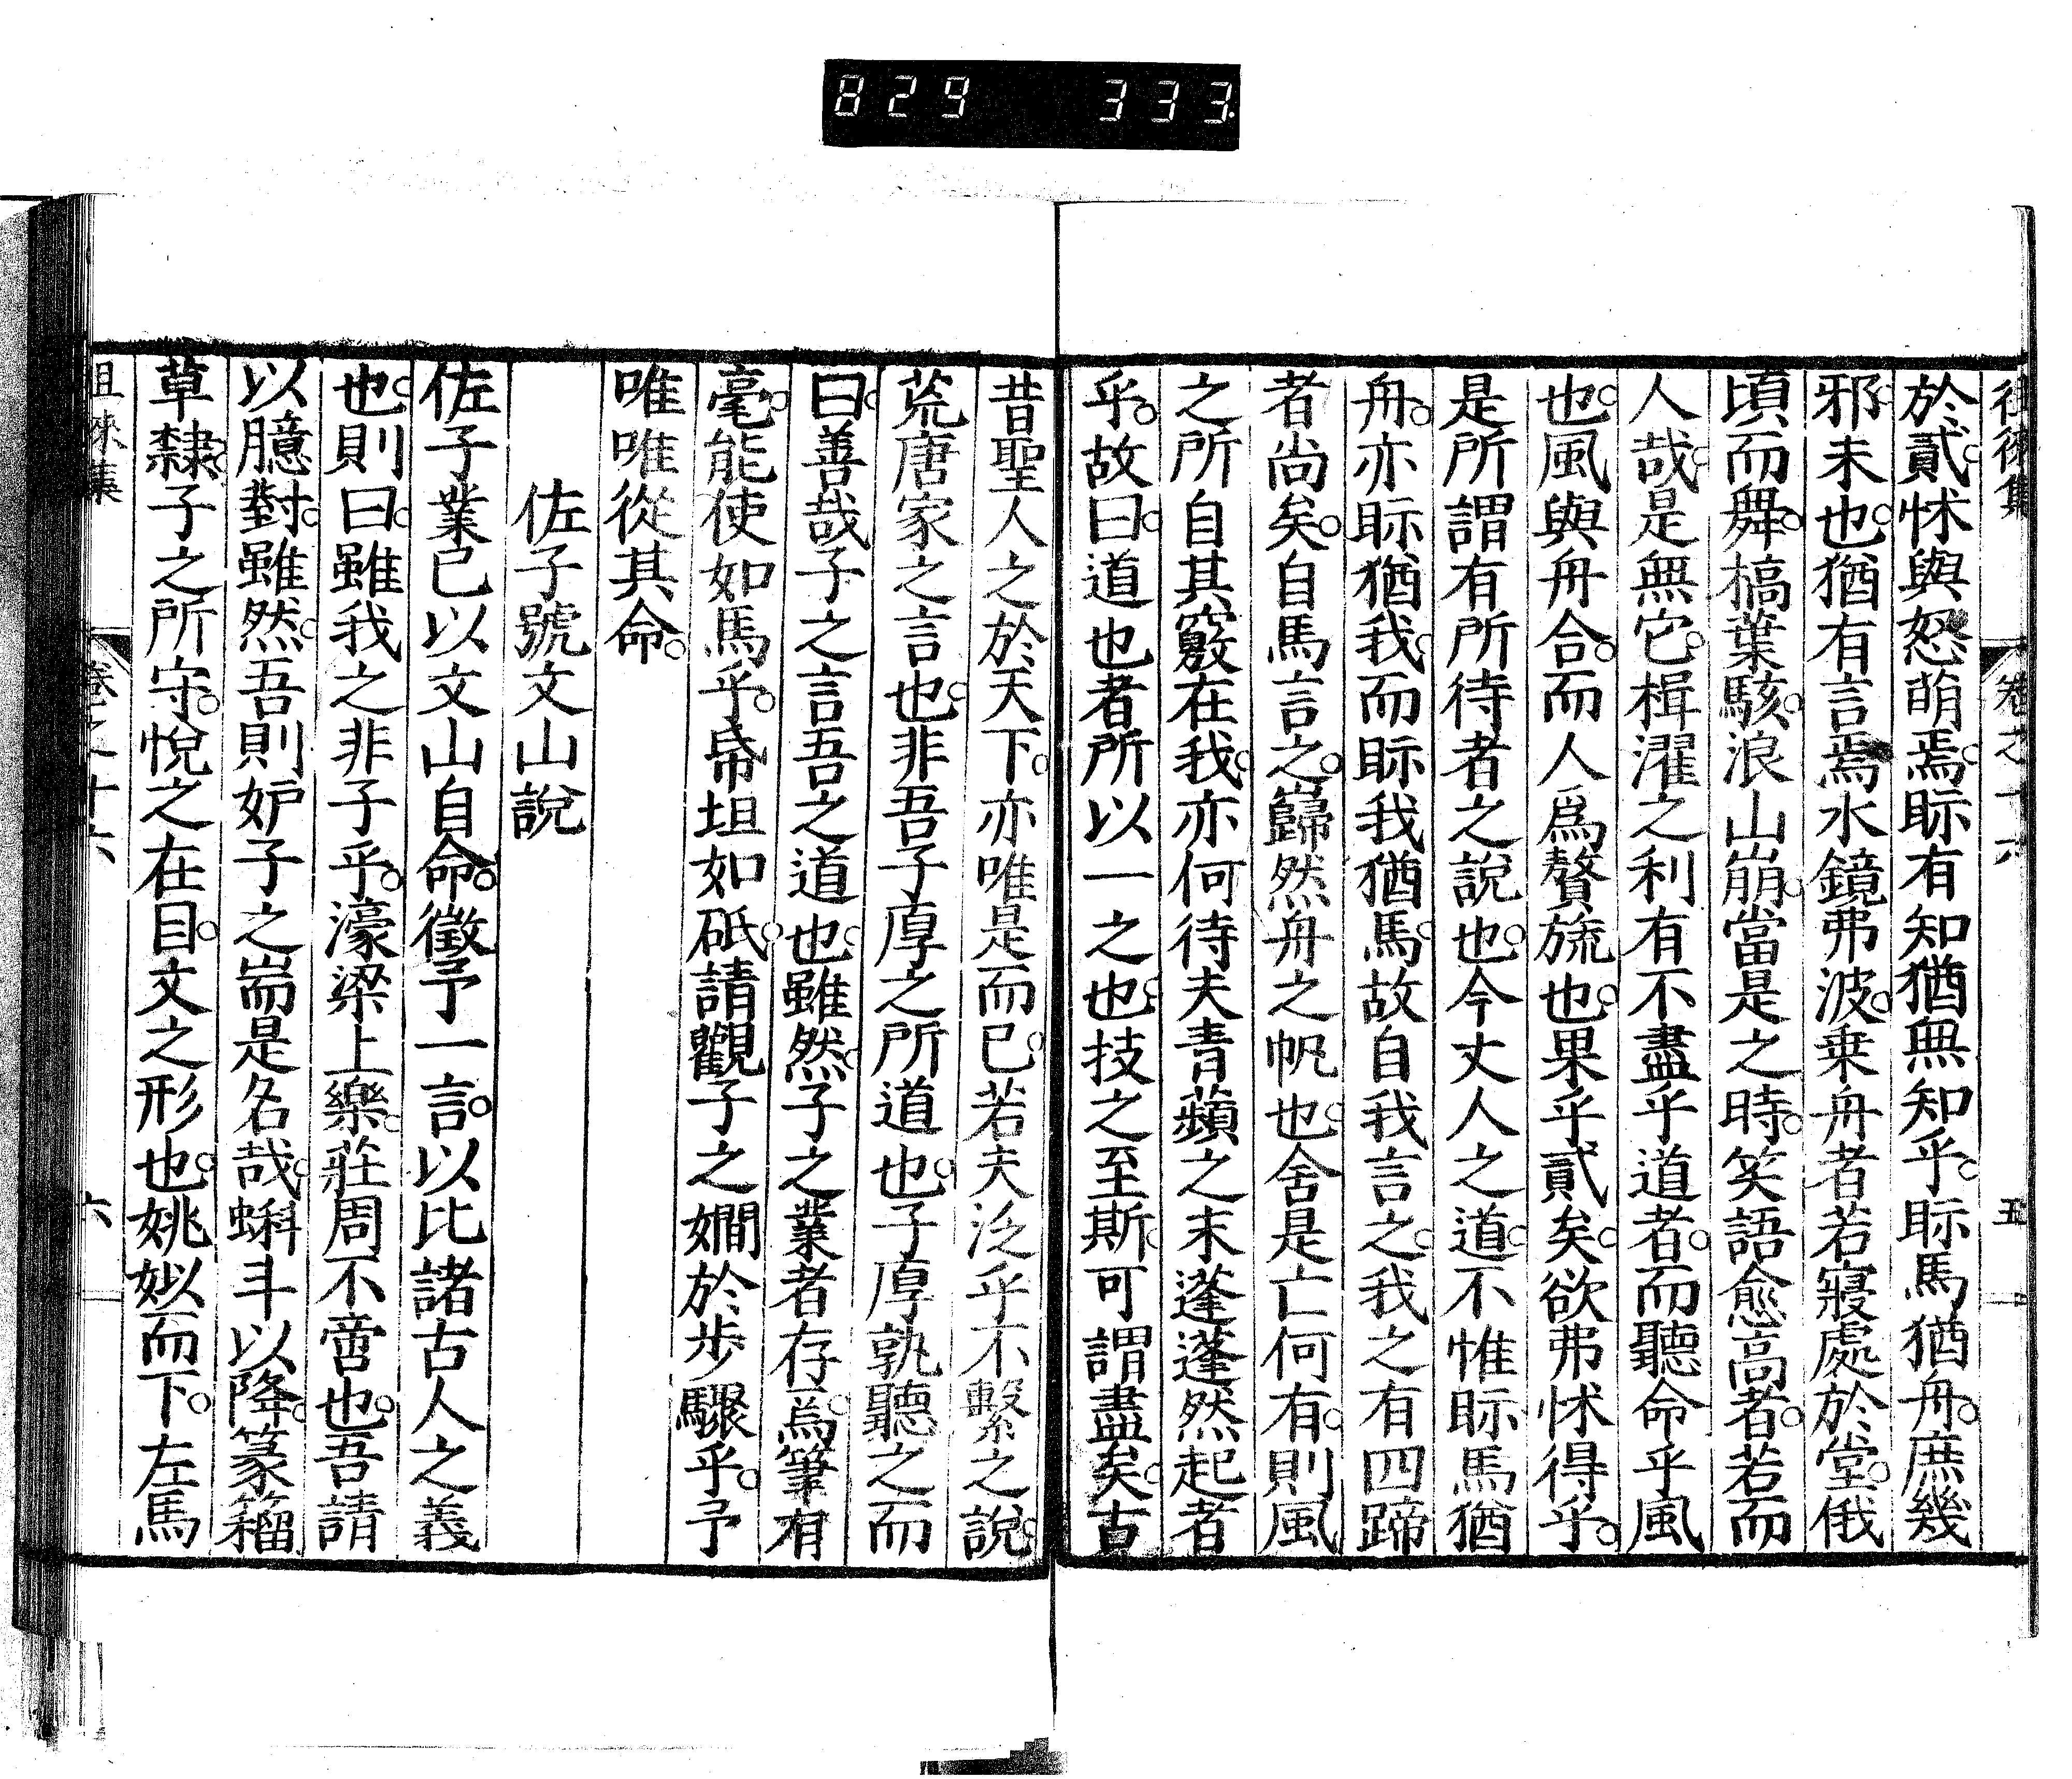 829 333.
徂徠集 卷之十六 五
於貳怵與怒萌焉眎有知猶無知乎眎馬猶舟庶幾
邪未也猶有言焉水鏡弗波乗舟者若寢處於堂俄
頃而舞槁葉駭浪山崩當是之時笑語愈高者若而
人哉是無它楫濯之利有不盡乎道者而聽命乎風
也風與舟合而人爲贅旒也果乎貳矣欲弗怵得乎
是所謂有所待者之說也今丈人之道不惟眎馬猶
舟亦眎猶我而眎我猶馬故自我言之我之有四蹄
者尚矣自馬言之巋然舟之帆也舍是亡何有則風
之所自其竅在我亦何待夫青蘋之末蓬蓬然起者
乎故曰道也者所以一之也技之至斯可謂盡矣古
昔聖人之於天下亦唯是而已若夫泛乎不繫之說
荒唐家之言也非吾子厚之所道也子厚孰聽之而
曰善哉子之言吾之道也雖然子之業者存焉筆有
毫能使如馬乎帋坦如砥請觀子之嫺於步驟乎予
唯唯從其命
佐子號文山說
佐子業已以文山自命徵予一言以比諸古人之義
也則曰雖我之非子乎濠梁上樂莊周不啻也吾請
以臆對雖然吾則妒子之耑是名哉蝌斗以降篆籀
草隸子之所守悅之在目文之形也姚姒而下左馬
徂徠集 卷之十六 六